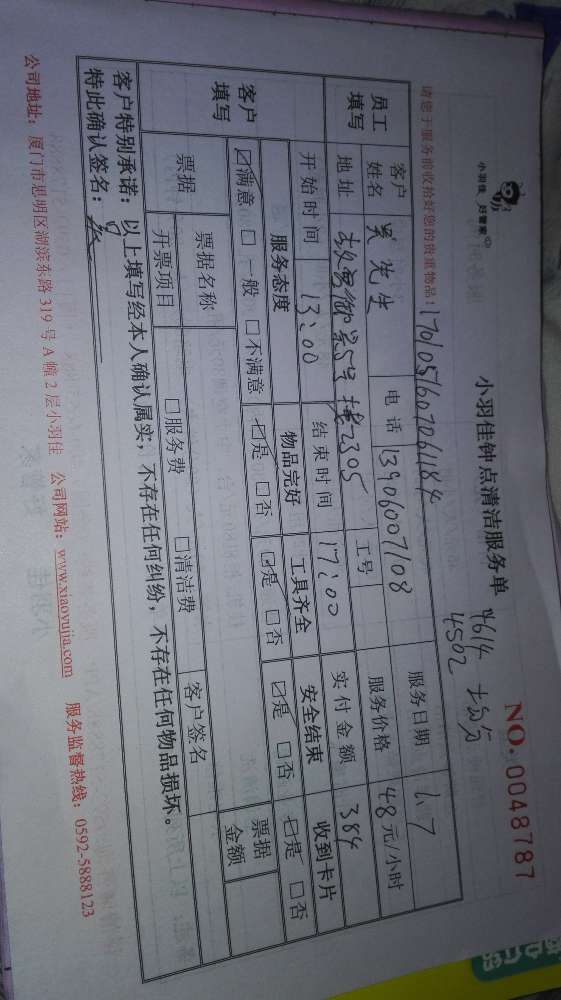 小羽佳 好管家
小羽佳钟点清洁服务单
NO. 0048787
4614
4502
请您于服务前收拾好您的贵重物品: 1701051607061184
服务日期 1.7
员工填写 客户姓名 吴先生 电话 13906007108 服务价格 48元/小时
地址 5号楼2305 工号
开始时间 13:00 结束时间 17:00 实付金额 384
客户填写 服务态度 物品完好 工具齐全 安全结束 收到卡片
☑满意 □一般 □不满意 ☑是 □否 ☑是 □否 ☑是 □否 ☑是 □否
票据 票据名称 客户签名 票据金额
开票项目 □服务费 □清洁费
客户特别承诺: 以上填写经本人确认属实, 不存在任何纠纷, 不存在任何物品损坏。
特此确认签名:
公司地址: 厦门市思明区湖滨东路 319 号 A 幢 2 层小羽佳 公司网站: www.xiaoyujia.com 服务监督热线: 0592-5888123